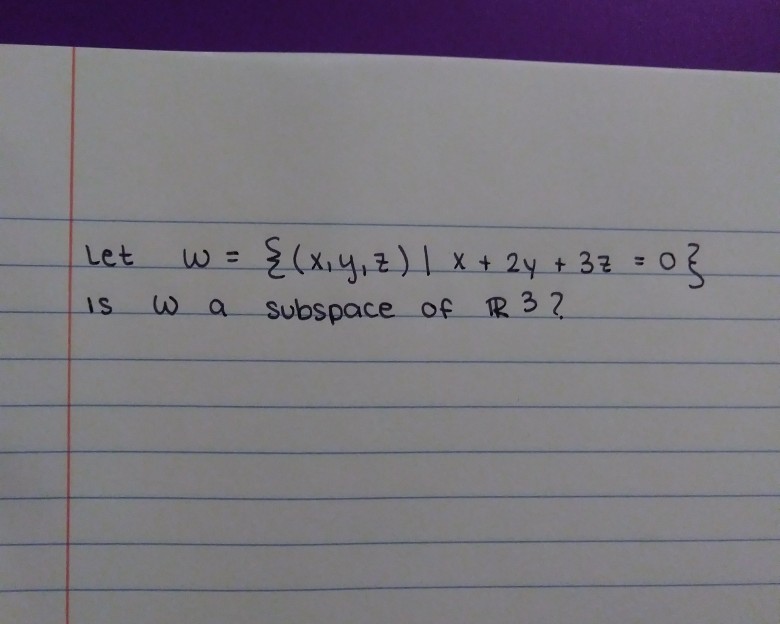 Let W = {(x,y,z) | x + 2y + 3z = 0}
is W a subspace of ℝ3?